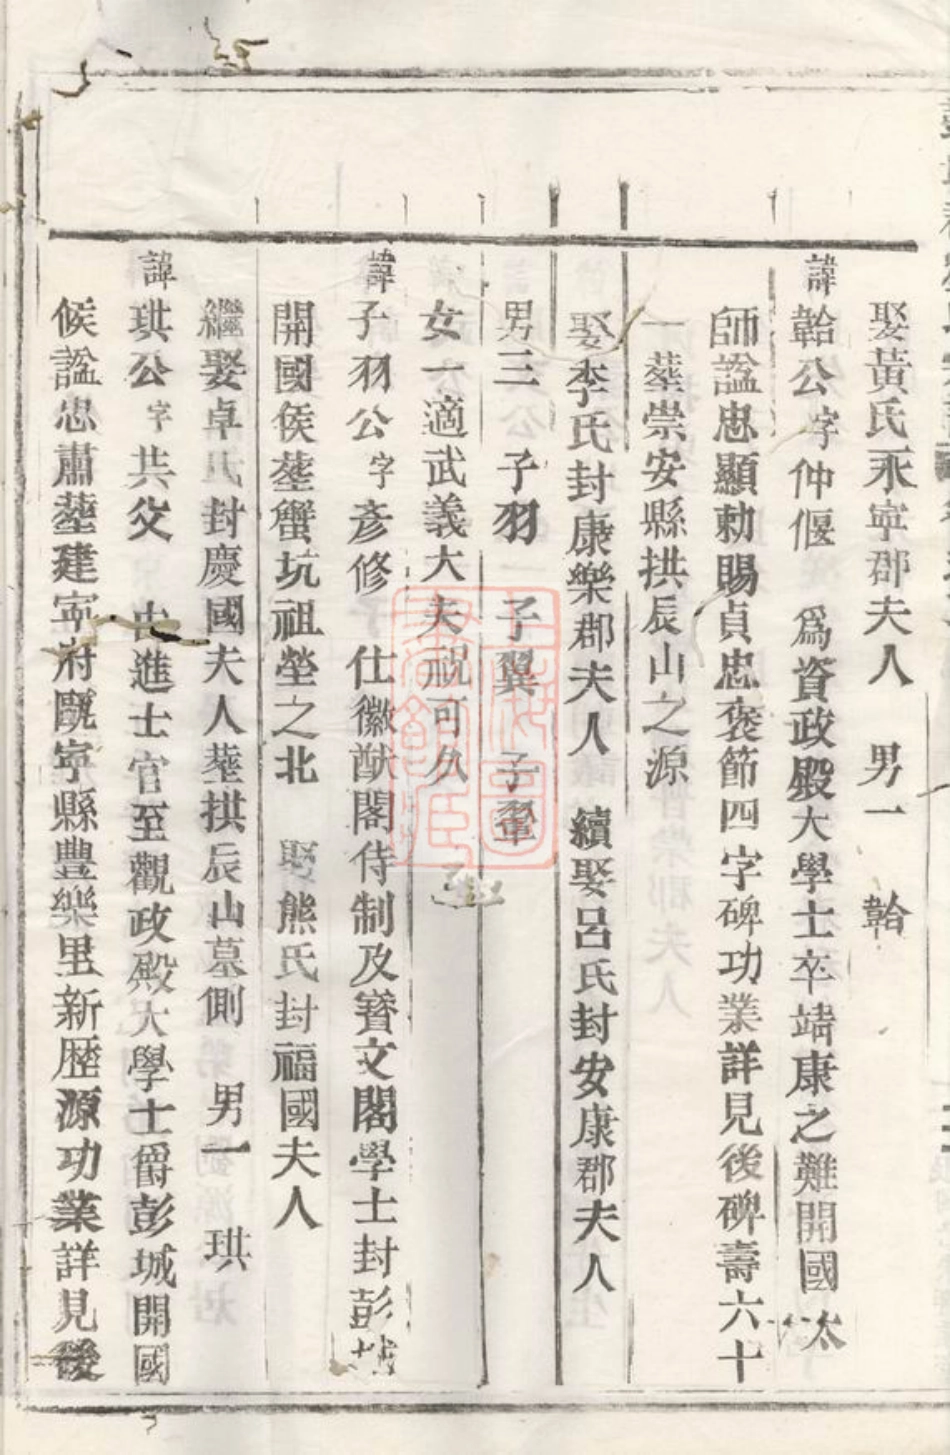 娶黃氏永寧郡夫人 男一 韐
諱韐公字仲偃 爲資政殿大學士卒靖康之難開國太
師謚忠顯勅賜貞忠褒節四字碑功業詳見後碑壽六十
一塟崇安縣拱辰山之源
娶李氏封康樂郡夫人 續娶呂氏封安康郡夫人
男三 子羽 子翼 子翬
女一適武義大夫祝可久
諱子羽公字彥修 仕徽猷閣侍制及寳文閣學士封彭城
開國侯塟蟹坑祖塋之北 娶熊氏封福國夫人
繼娶卓氏封慶國夫人塟拱辰山墓側 男一 珙
諱珙公字共父 由進士官至觀政殿大學士爵彭城開國
候謚忠肅塟建寧府甌寧縣豐樂里新歷源功業詳見後